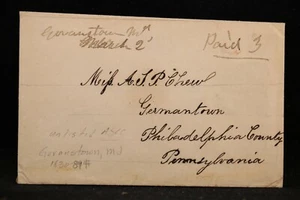 Govanstown Md
March 2d
Paid 3
Miss A. S. P. Chew
Germantown
Philadelphia County
Pennsylvania
Govanstown, Md